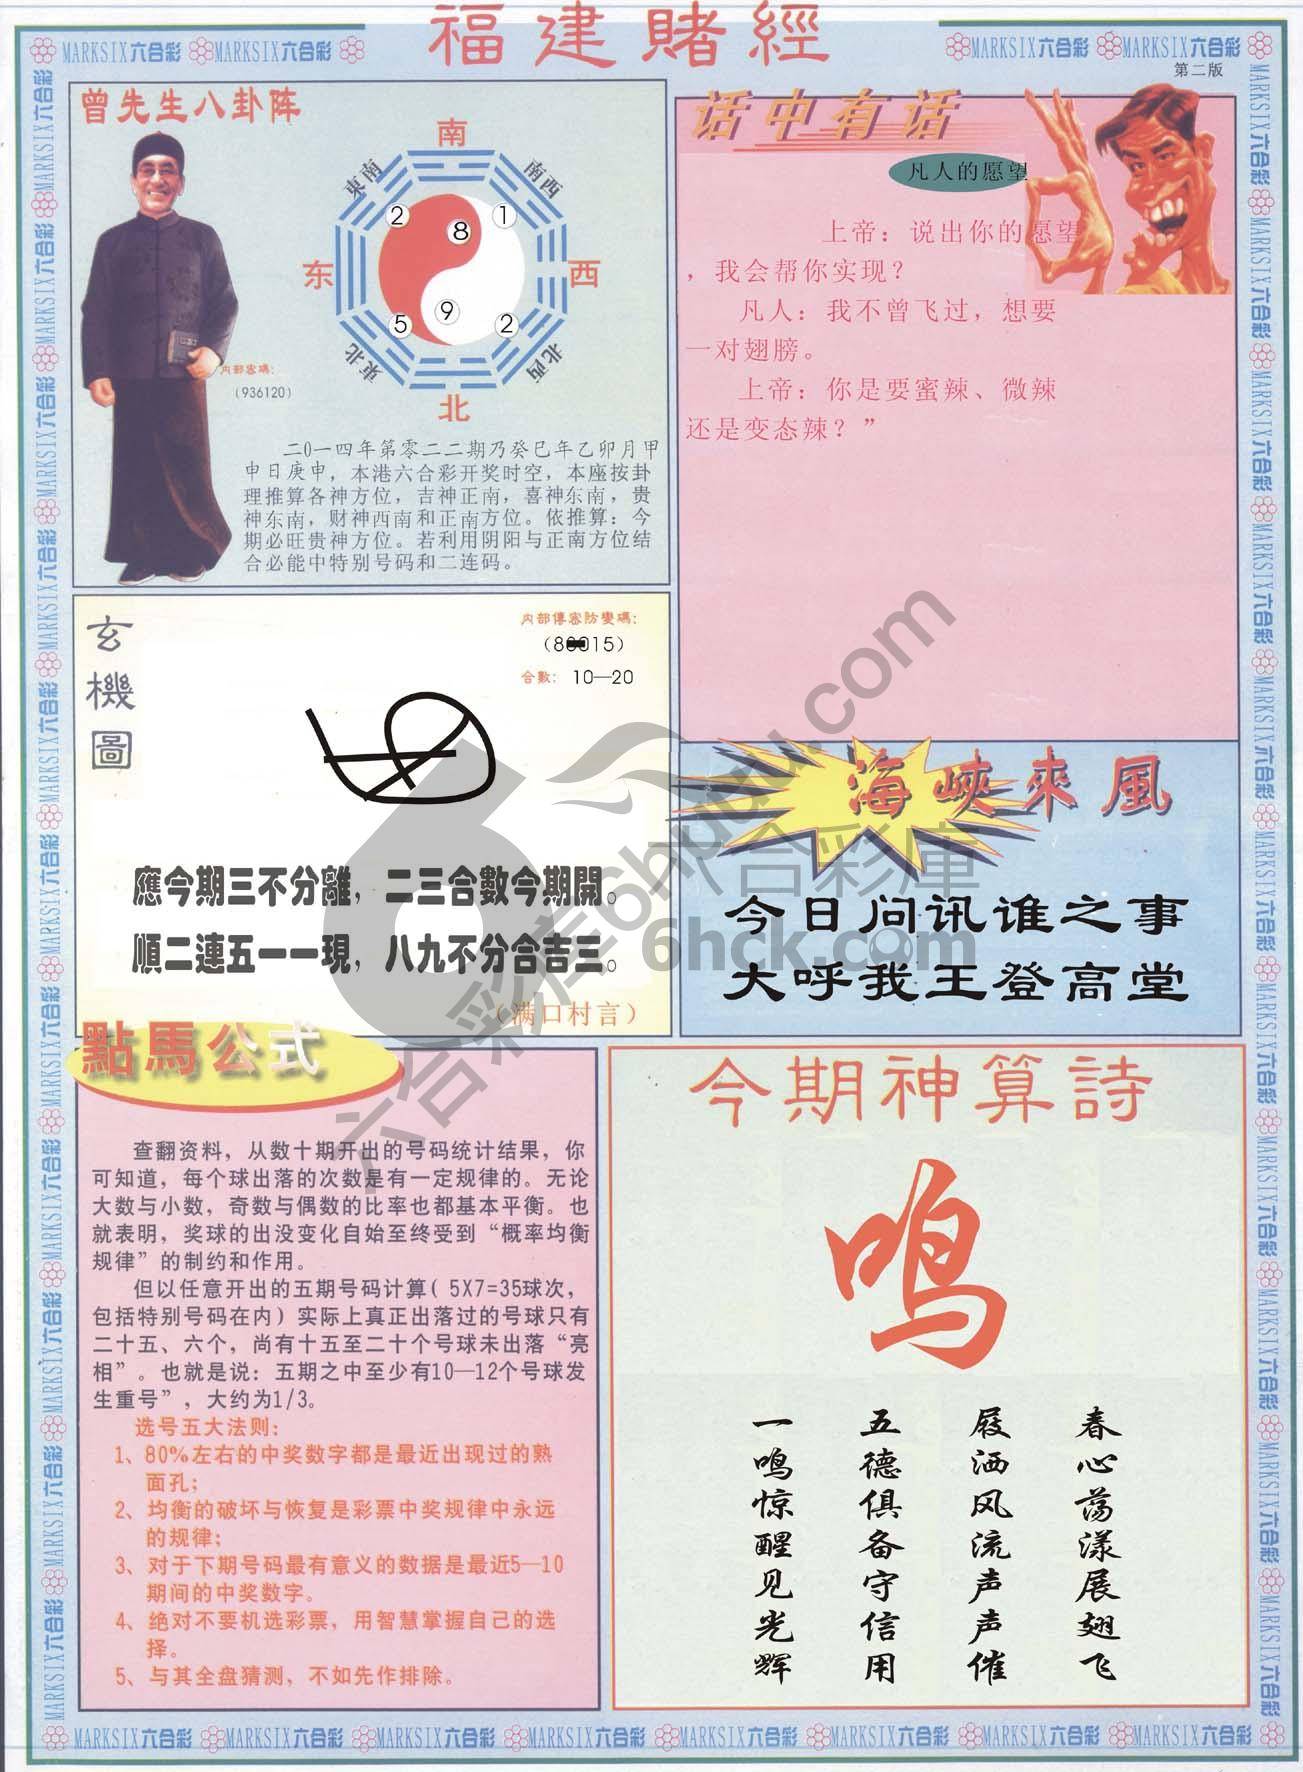 福建賭經
MARKSIX六合彩 MARKSIX六合彩
MARKSIX六合彩 MARKSIX六合彩
第二版
曾先生八卦阵
南
東南
南西
2
8
1
东
西
5
9
2
東北
北西
北
内部密碼:
(936120)
二0一四年第零二二期乃癸巳年乙卯月甲
申日庚申，本港六合彩开奖时空，本座按卦
理推算各神方位，吉神正南，喜神东南，贵
神东南，财神西南和正南方位。依推算：今
期必旺贵神方位。若利用阴阳与正南方位结
合必能中特别号码和二连码。
话中有话
凡人的愿望
上帝：说出你的愿望
，我会帮你实现？
凡人：我不曾飞过，想要
一对翅膀。
上帝：你是要蜜辣、微辣
还是变态辣？”
玄機圖
内部傳密防變碼:
合數: 10—20
應今期三不分離，二三合數今期開。
順二連五一一現，八九不分合吉三。
（满口村言）
海峽來風
今日问讯谁之事
大呼我王登高堂
點馬公式
查翻资料，从数十期开出的号码统计结果，你
可知道，每个球出落的次数是有一定规律的。无论
大数与小数，奇数与偶数的比率也都基本平衡。也
就表明，奖球的出没变化自始至终受到“概率均衡
规律”的制约和作用。
但以任意开出的五期号码计算( 5X7=35球次，
包括特别号码在内）实际上真正出落过的号球只有
二十五、六个，尚有十五至二十个号球未出落“亮
相”。也就是说：五期之中至少有10—12个号球发
生重号”，大约为1/3。
选号五大法则：
1、80%左右的中奖数字都是最近出现过的熟
面孔；
2、均衡的破坏与恢复是彩票中奖规律中永远
的规律；
3、对于下期号码最有意义的数据是最近5—10
期间的中奖数字。
4、绝对不要机选彩票，用智慧掌握自己的选
择。
5、与其全盘猜测，不如先作排除。
今期神算詩
鸣
春心荡漾展翅飞
屐洒风流声声催
五德俱备守信用
一鸣惊醒见光辉
六合彩库6hhudu.com
六合彩庫
6hck.com
MARKSIX六合彩 MARKSIX六合彩 MARKSIX六合彩 MARKSIX六合彩 MARKSIX六合彩 MARKSIX六合彩 MARKSIX六合彩 MARKSIX六合彩